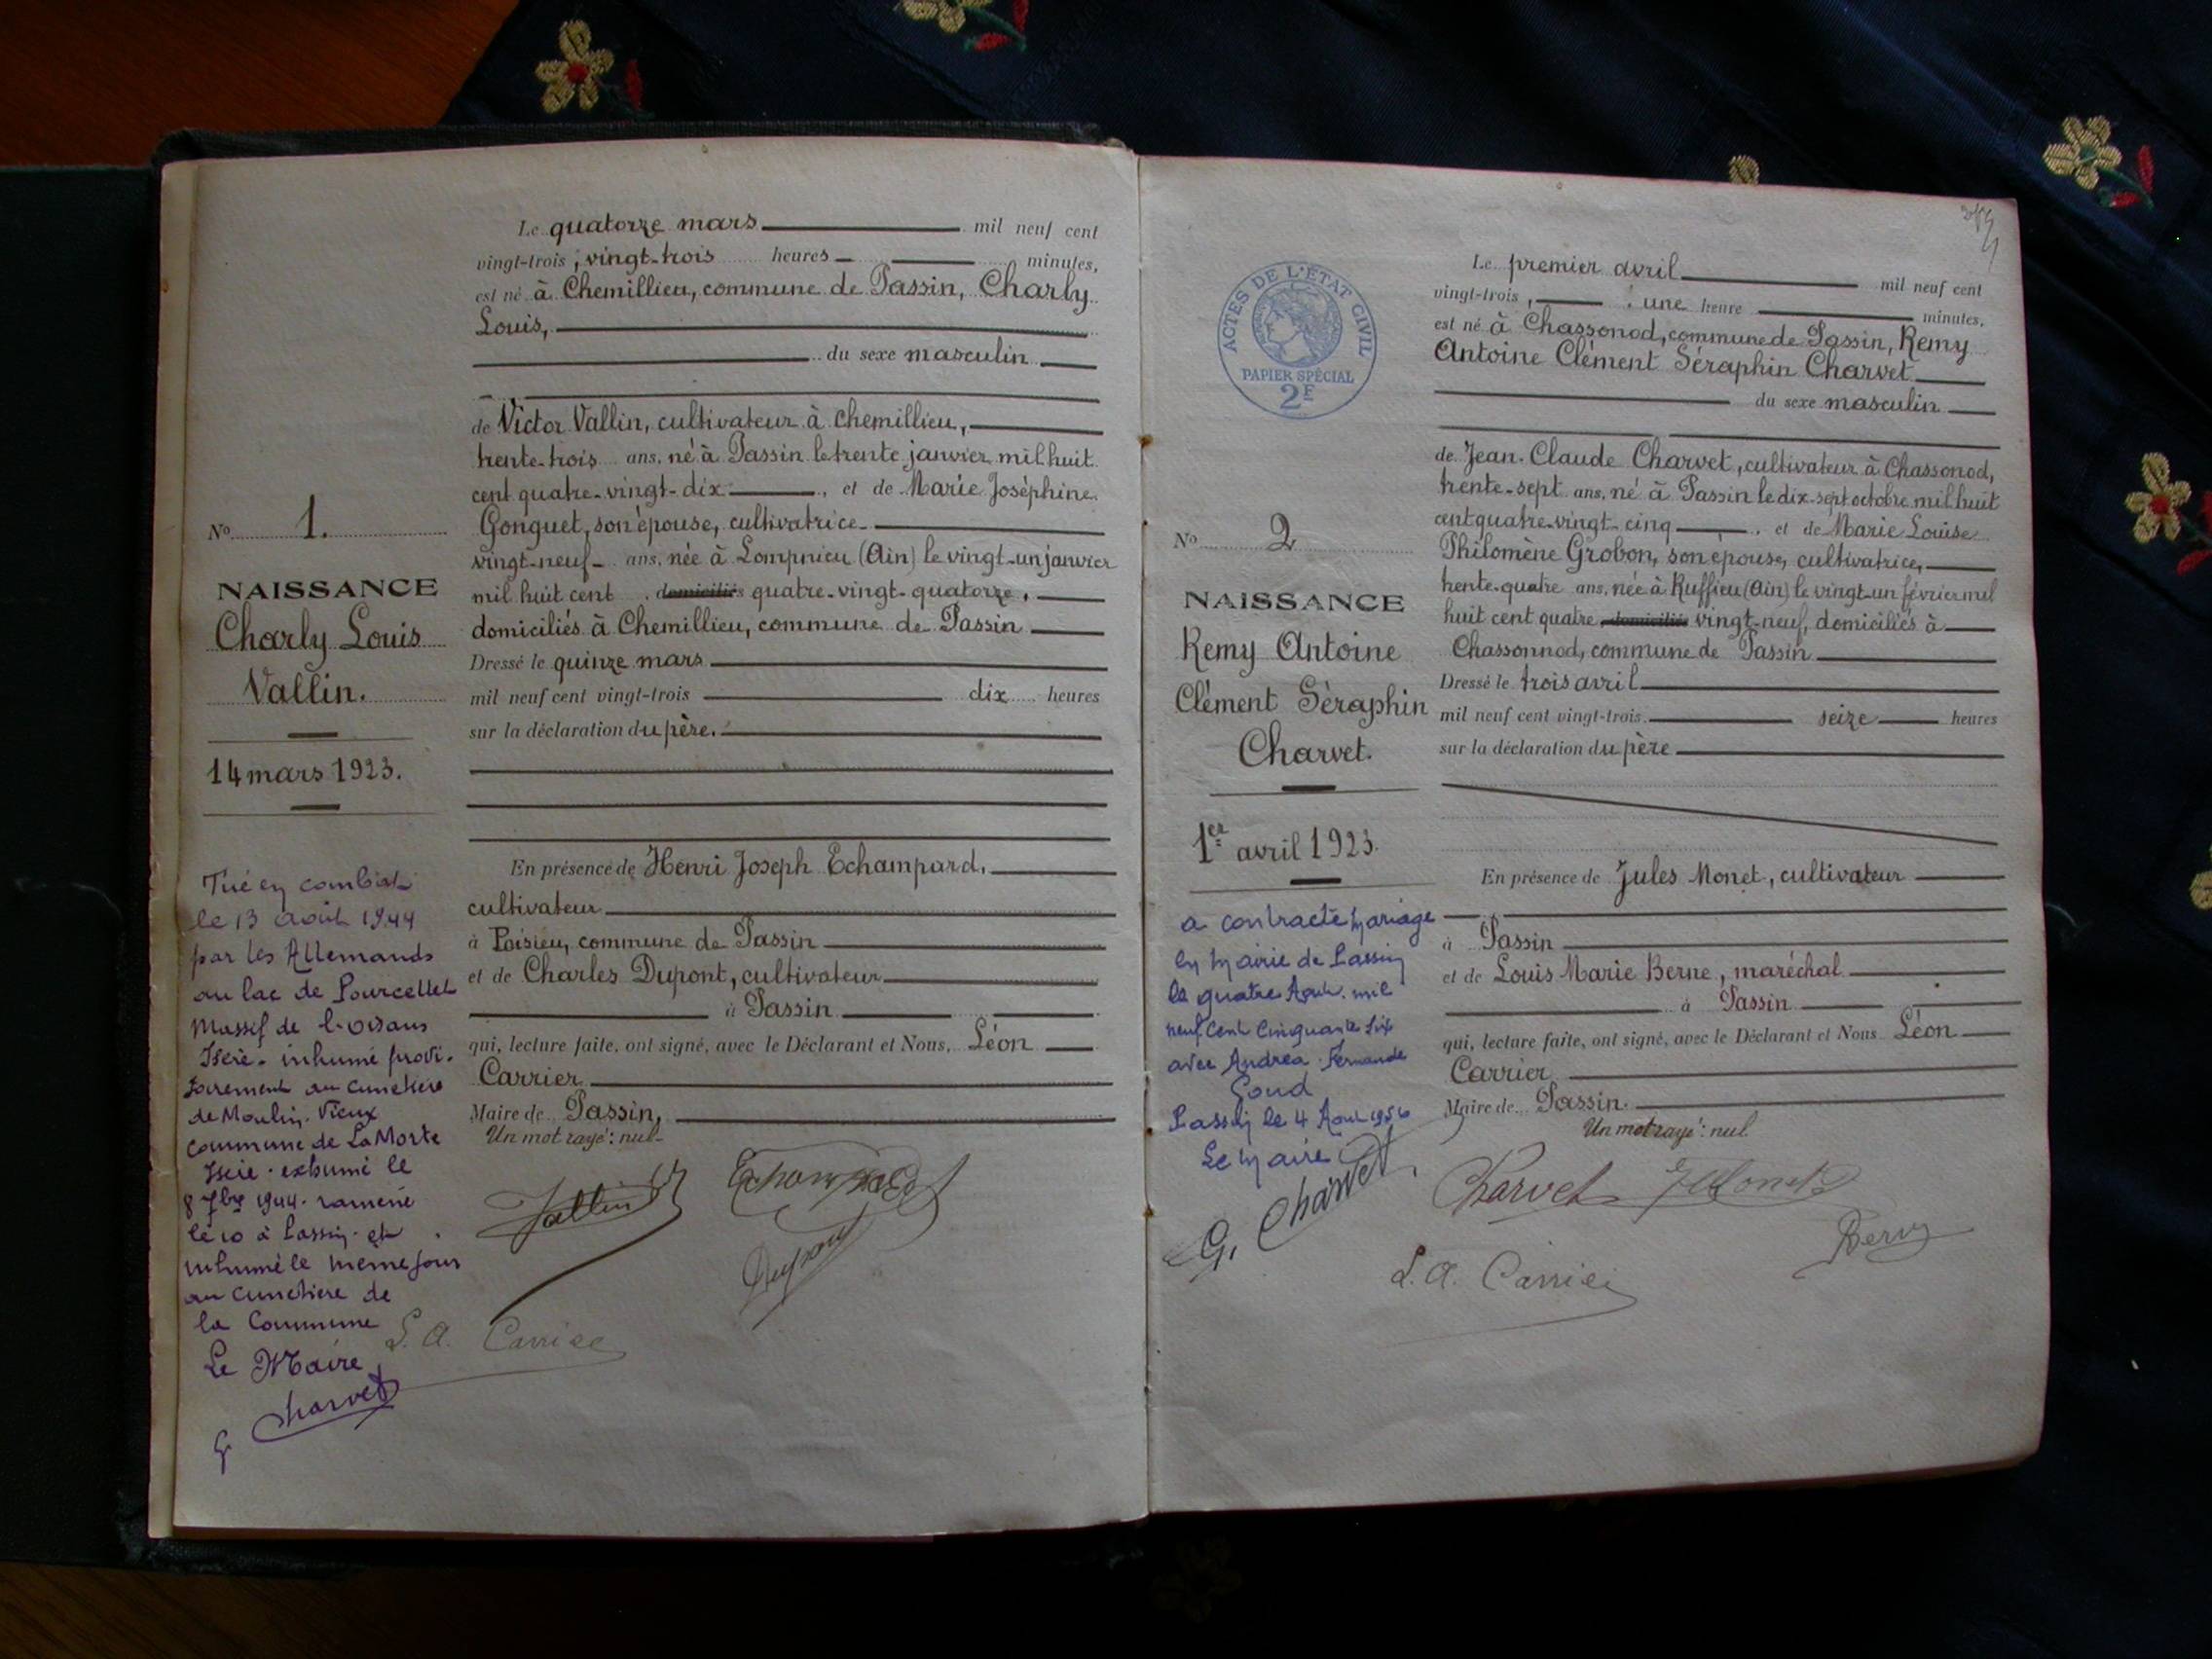 Le quatorze mars mil neuf cent
vingt-trois, vingt-trois heures minutes,
est né à Chemillieu, commune de Passin, Charly
Louis,
du sexe masculin
de Victor Vallin, cultivateur à Chemillieu,
trente-trois ans, né à Passin le trente janvier mil huit
cent quatre-vingt-dix, et de Marie Joséphine
Gonguet, son épouse, cultivatrice
vingt-neuf ans, née à Lompnieu (Ain) le vingt-un janvier
mil huit cent domiciliés quatre-vingt-quatorze,
domiciliés à Chemillieu, commune de Passin
Dressé le quinze mars
mil neuf cent vingt-trois dix heures
sur la déclaration du père.
En présence de Henri Joseph Echampard,
cultivateur
à Poisieu, commune de Passin
et de Charles Dupont, cultivateur
à Passin
qui, lecture faite, ont signé, avec le Déclarant et Nous, Léon
Carrier
Maire de Passin,
Un mot rayé: nul
Vallin Echampard
Dupont
L. A. Carrier
No 1.
NAISSANCE
Charly Louis
Vallin.
14 mars 1923.
Tué en combat
le 13 août 1944
par les Allemands
au lac de Pourcellet
Massif de l'oisans
Isère - inhumé provi-
soirement au cimetière
de Moulin-Vieux
commune de La Morte
Isère - exhumé le
8 7bre 1944 - ramené
le 10 à Passin - et
inhumé le meme jour
au cimetiere de
la Commune
Le Maire
G Charvet
ACTES DE L'ÉTAT CIVIL
PAPIER SPÉCIAL
2F
No 2
NAISSANCE
Remy Antoine
Clément Séraphin
Charvet.
1er avril 1923.
a contracté mariage
en mairie de Passin
le quatre Août mil
neuf cent cinquante six
avec Andréa Fernande
Goud
Passin le 4 Aout 1956
Le maire
G. Charvet
Le premier avril mil neuf cent
vingt-trois, une heure minutes,
est né à Chassonod, commune de Passin, Remy
Antoine Clément Séraphin Charvet
du sexe masculin
de Jean-Claude Charvet, cultivateur à Chassonod,
trente-sept ans, né à Passin le dix-sept octobre mil huit
cent quatre-vingt-cinq, et de Marie Louise
Philomène Grobon, son épouse, cultivatrice,
trente-quatre ans, née à Ruffieu (Ain) le vingt-un février mil
huit cent quatre domiciliés vingt-neuf, domiciliés à
Chassonnod, commune de Passin
Dressé le trois avril
mil neuf cent vingt-trois seize heures
sur la déclaration du père
En présence de Jules Monet, cultivateur
à Passin
et de Louis Marie Berne, maréchal
à Passin
qui, lecture faite, ont signé, avec le Déclarant et Nous Léon
Carrier
Maire de Passin.
Un mot rayé: nul
Charvet J Monet
Berne
L. A. Carrier